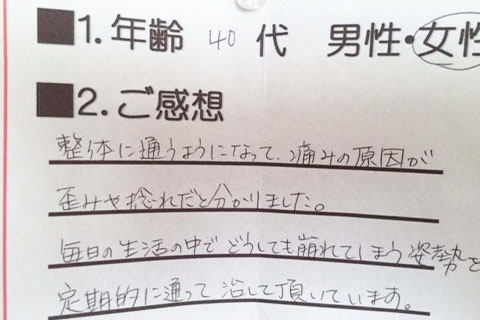 ■1.年齢 40 代 男性・女性
■2.ご感想
整体に通うようになって、痛みの原因が
歪みや捻れだと分かりました。
毎日の生活の中でどうしても崩れてしまう姿勢を
定期的に通って治して頂いています。